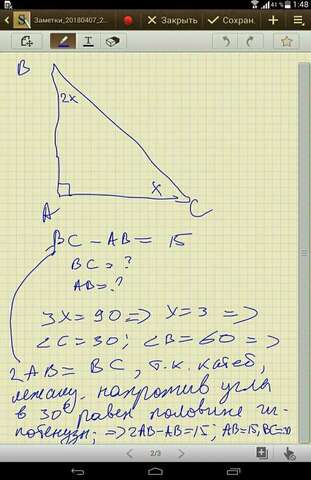 41 % 1:48
Заметки_20180407_2...
Закрыть
Сохран.
B
2x
x
A
C
BC - AB = 15
BC = ?
AB = ?
3x = 90 => x = 3 =>
∠C = 30; ∠B = 60 =>
2AB = BC, т.к. катет,
лежащ. напротив угла
в 30° равен половине ги-
потенузы; => 2AB - AB = 15; AB = 15, BC = 30
2/3